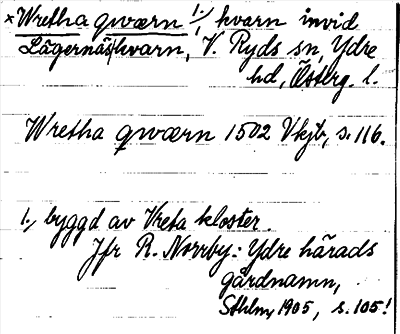 × Wretha qwærn 1./ hvarn invid
Lägernäs hvarn, V. Ryds sn, Ydre
hd, Österg. l.
Wretha qwærn 1502 Vkjb, s. 116.
1./ byggd av Vreta kloster.
Jfr R. Norrby: Ydre härads
gårdnamn,
Sthlm, 1905, s. 105!